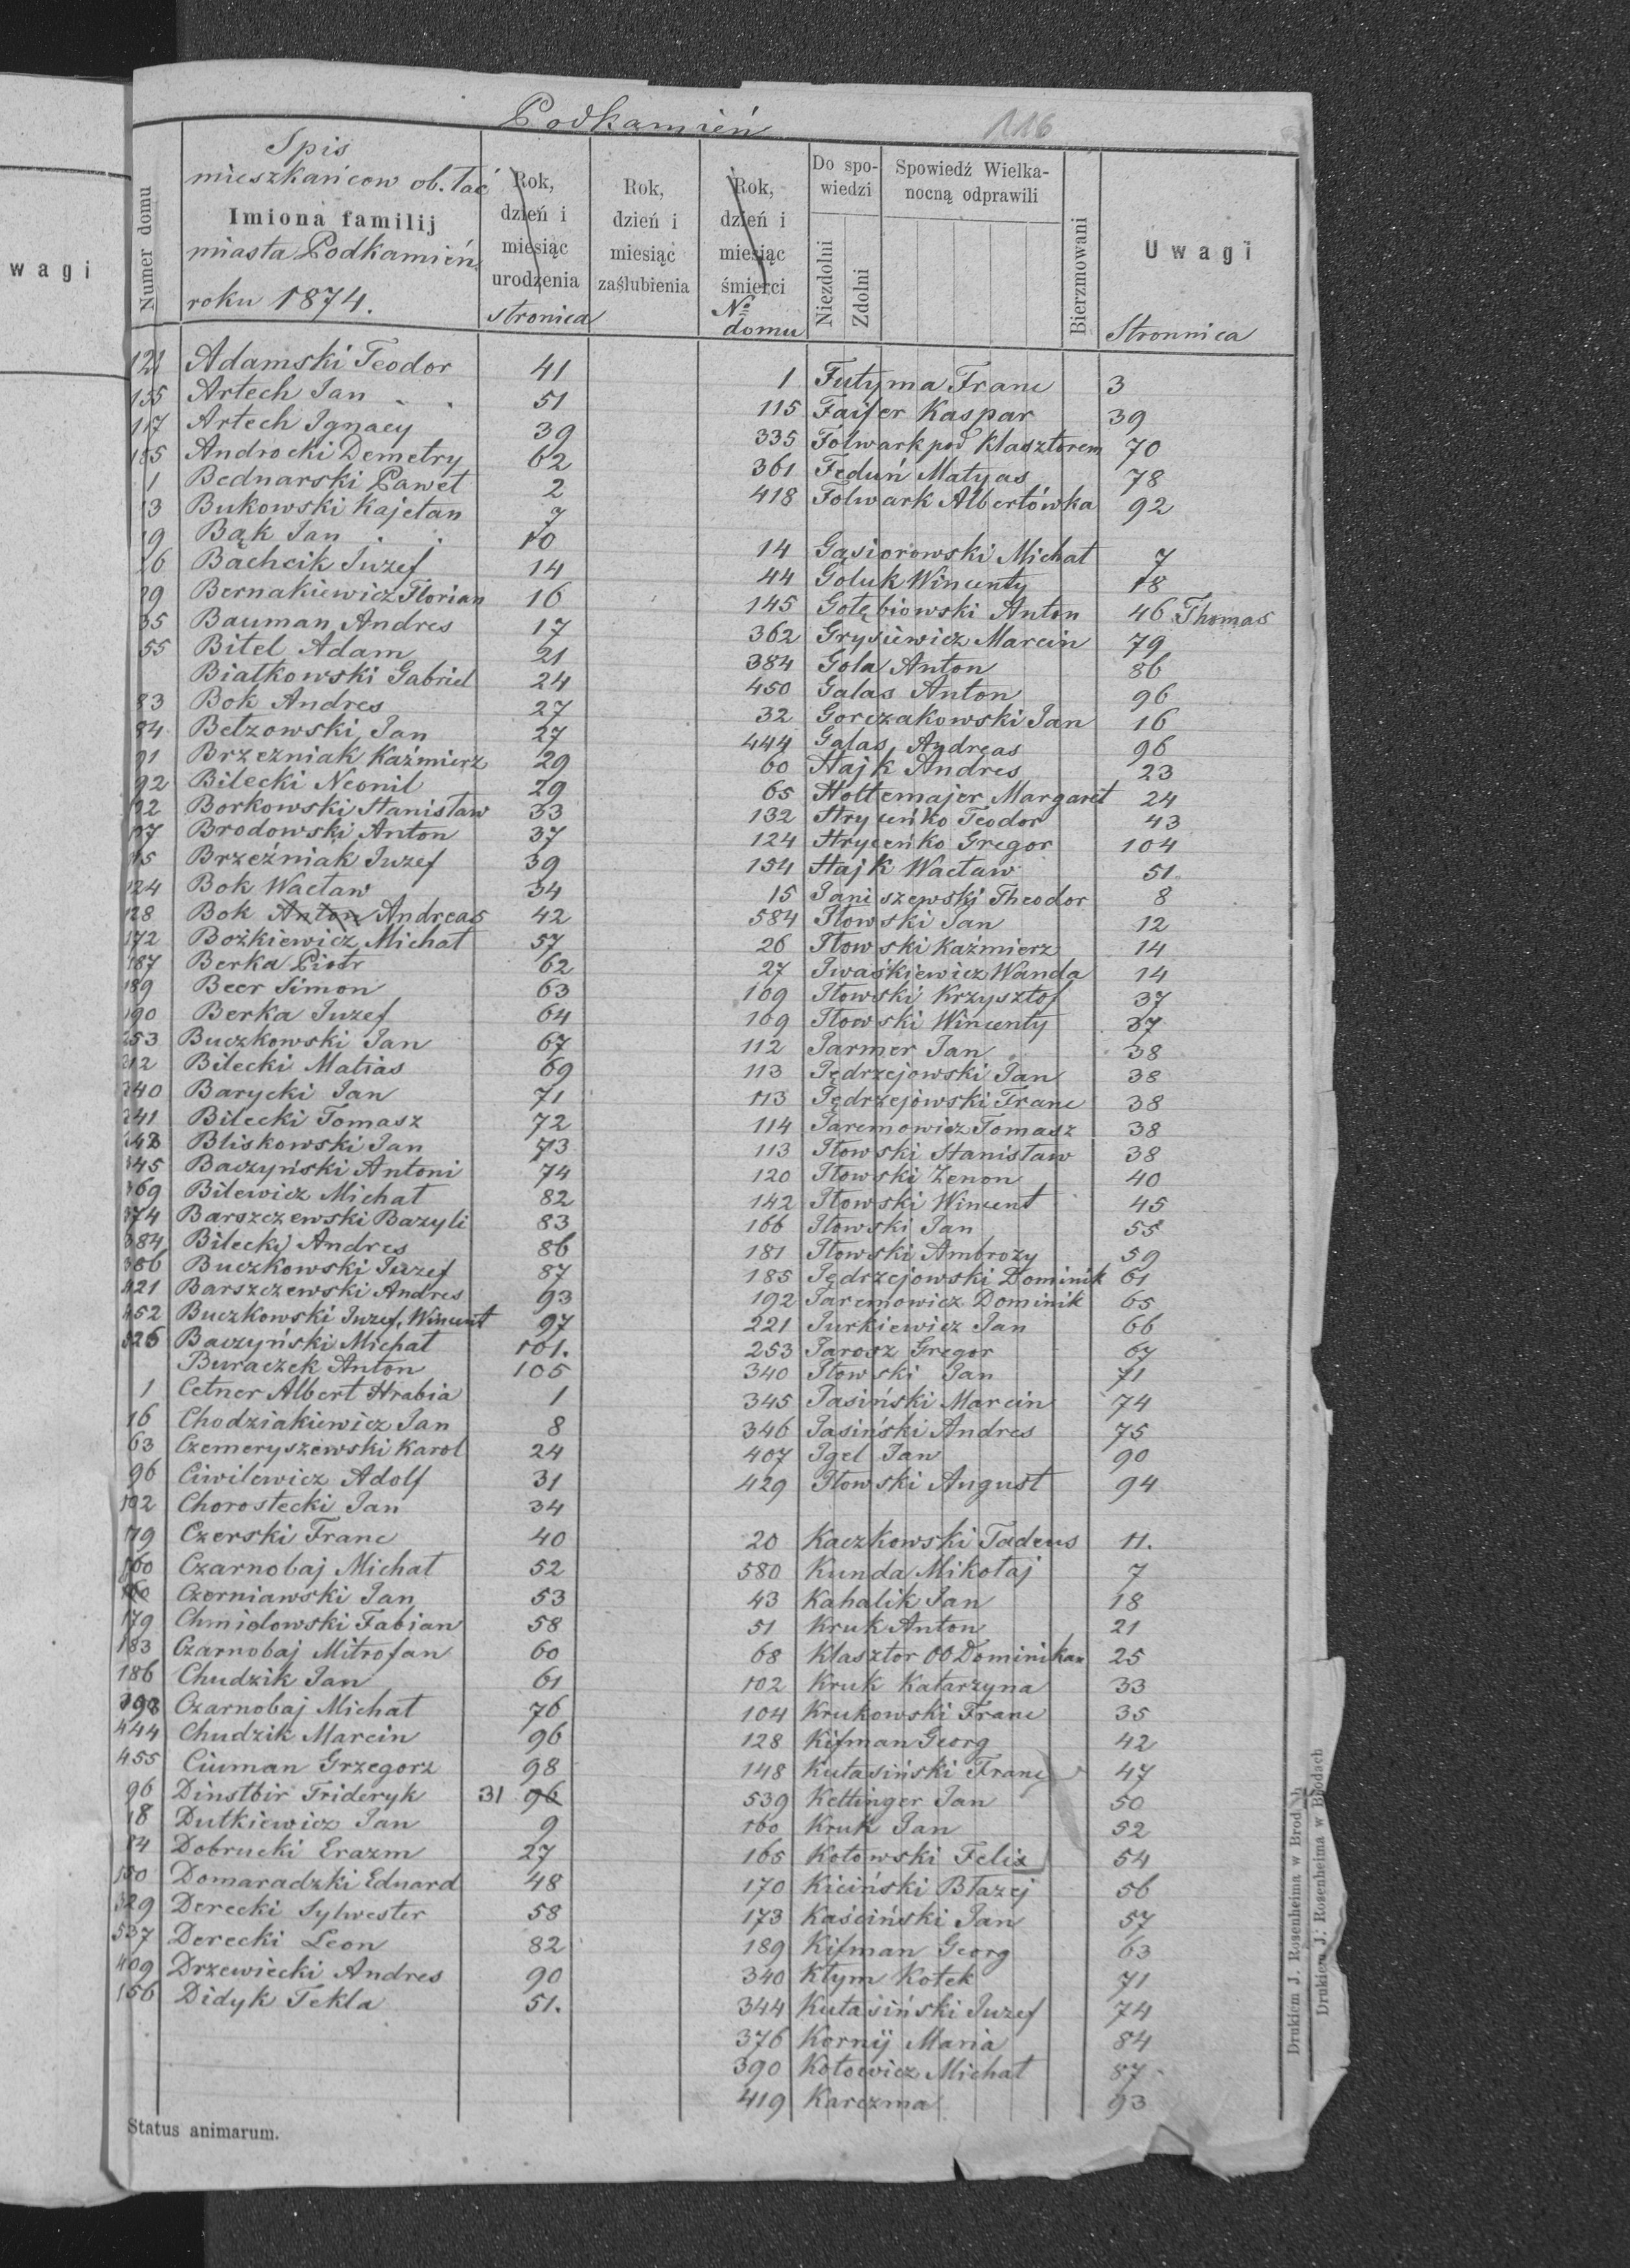 wagi
Podkamień
116
Numer domu
Spis
mieszkańcow ob. łać
Imiona familij
miasta Podkamień
roku 1874.
Rok,
dzień i
miesiąc
urodzenia
stronica
Rok,
dzień i
miesiąc
zaślubienia
Rok,
dzień i
miesiąc
śmierci
No
domu
Do spo-
wiedzi
Niezdolni
Zdolni
Spowiedź Wielka-
nocną odprawili
Bierzmowani
Uwagi
Stronnica
121 Adamski Teodor 41
155 Artech Jan . . 51
117 Artech Ignacy 39
185 Androcki Demetry 62
1 Bednarski Paweł 2
13 Bukowski Kajetan 7
19 Bąk Jan . . 10
26 Bachcik Juzef 14
29 Bernakiewicz Florian 16
35 Bauman Andres 17
55 Bitel Adam 21
Białkowski Gabriel 24
83 Bok Andres 27
84 Bełzowski Jan 27
91 Brzezniak Kaźmierz 29
92 Bilecki Neonil 29
92 Borkowski Stanisław 33
107 Brodowski Anton 37
115 Brzeźniak Juzef 39
124 Bok Wacław 34
128 Bok Anton Andreas 42
172 Bożkiewicz Michał 57
187 Berka Piotr 62
189 Beer Simon 63
190 Berka Juzef 64
253 Buczkowski Jan 67
312 Bilecki Matias 69
340 Barycki Jan 71
341 Bilecki Tomasz 72
343 Bliskowski Jan 73
345 Baczyński Antoni 74
369 Bilewicz Michał 82
374 Barszczewski Bazyli 83
384 Bilecki Andres 86
386 Buczkowski Juzef 87
421 Barszczewski Andres 93
452 Buczkowski Juzef, Wincent 97
526 Baczyński Michał 101.
Buraczek Anton 105
1 Cetner Albert Hrabia 1
16 Chodziakiewicz Jan 8
63 Czemeryszewski Karol 24
96 Ciwilewicz Adolf 31
102 Chorostecki Jan 34
119 Czerski Franc 40
160 Czarnobaj Michał 52
160 Czerniawski Jan 53
179 Chmielowski Fabian 58
183 Czarnobaj Mitrofan 60
186 Chudzik Jan 61
Czarnobaj Michał 76
444 Chudzik Marcin 96
455 Ciuman Grzegorz 98
96 Dinstbir Frideryk 31 96
18 Dutkiewicz Jan 9
84 Dobrucki Erazm 27
150 Domaradzki Eduard 48
329 Derecki Sylwester 58
537 Derecki Leon 82
409 Drzewiecki Andres 90
156 Didyk Tekla 51.
1 Futyma Franc 3
115 Faifer Kaspar 39
335 Folwark pod Klasztorem 70
361 Feduń Matyas 78
418 Folwark Albertówka 92
14 Gąsiorowski Michał 7
44 Goluk Wincenty 18
145 Gołębiowski Anton 46 Thomas
362 Grysiewicz Marcin 79
384 Gola Anton 86
450 Galas Anton 96
32 Gorczakowski Jan 16
444 Galas Andreas 96
60 Hajk Andres 23
65 Holtemajer Margaret 24
132 Hryceńko Teodor 43
124 Hryceńko Gregor 104
154 Hajk Wacław 51
15 Janiszewski Theodor 8
584 Iłowski Jan 12
26 Iłowski Kaźmierz 14
27 Iwaśkiewicz Wanda 14
109 Iłowski Krzysztof 37
109 Iłowski Wincenty 37
112 Jarmer Jan 38
113 Jędrzejowski Jan 38
113 Jędrzejowski Franc 38
114 Jaremowicz Tomasz 38
113 Iłowski Stanisław 38
120 Iłowski Zenon 40
142 Iłowski Wincent 45
166 Iłowski Jan 55
181 Iłowski Ambrozy 59
185 Jędrzejowski Dominik 61
192 Jaremowicz Dominik 65
221 Jurkiewicz Jan 66
253 Jarosz Gregor 67
340 Iłowski Jan 71
345 Jasiński Marcin 74
346 Jasiński Andres 75
407 Igel Jan 90
429 Iłowski August 94
20 Kaczkowski Tadeus 11.
580 Kunda Mikołaj 7
43 Kahalik Jan 18
51 Kruk Anton 21
68 Klasztor OO Dominikan 25
102 Kruk Katarzyna 33
104 Krukowski Franc 35
128 Kifman Georg 42
148 Kutasiński Franc 47
539 Kettinger Jan 50
160 Kruk Jan 52
165 Kotowski Felix 54
170 Kiciński Błazej 56
173 Kaściński Jan 57
189 Kifman Georg 63
340 Kłym Kotek 71
344 Kutasiński Juzef 74
376 Kornij Maria 84
390 Kotowicz Michał 87
419 Karczma 93
Status animarum.
Drukiem J. Rosenheima w Brod.
Drukiem J. Rosenheima w Brodach